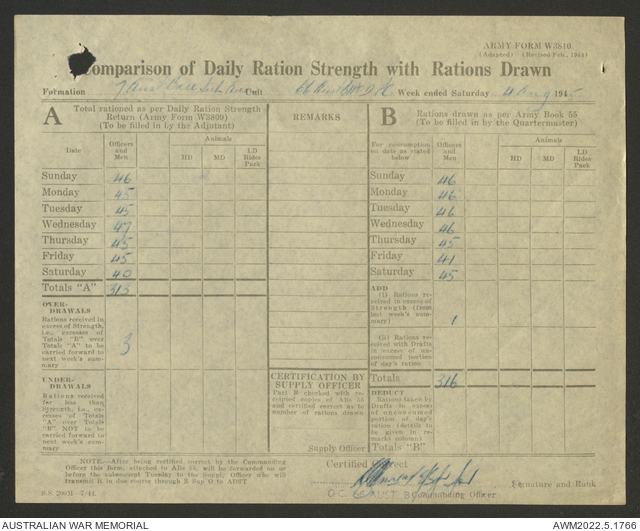 ARMY FORM W3810
(Adapted) (Revised Feb., 1944)
Comparison of Daily Ration Strength with Rations Drawn
Formation 7 Aust Base Sub Area Unit Week ended Saturday 4 Aug 1945
A Total rationed as per Daily Ration Strength
Return (Army Form W3809)
(To be filled in by the Adjutant)
Date Officers and Men Animals HD MD LD Rides Pack
Sunday 46
Monday 45
Tuesday 45
Wednesday 47
Thursday 45
Friday 45
Saturday 40
Totals "A" 313
OVER-
DRAWALS
Rations received in
excess of Strength,
i.e., excesses of
Totals "B" over
Totals "A" to be
carried forward to
next week's sum-
mary
3
UNDER-
DRAWALS
Rations received
for less than
Strength, i.e., ex-
cesses of Totals
"A" over Totals
"B" NOT to be
carried forward to
next week's sum-
mary
REMARKS
CERTIFICATION BY
SUPPLY OFFICER
Part B checked with re-
ceipted copies of AIis 55
and certified correct as to
number of rations drawn
Supply Officer
B Rations drawn as per Army Book 55
(To be filled in by the Quartermaster)
For consumption
on date as stated
below
Officers and Men Animals HD MD LD Rides Pack
Sunday 46
Monday 46
Tuesday 46
Wednesday 46
Thursday 45
Friday 41
Saturday 45
ADD
(i) Rations re-
ceived in excess of
Strength (from
last week's sum-
mary)
1
(ii) Rations re-
ceived with Drafts
in excess of un-
consumed portion
of day's ration
Totals 316
DEDUCT
Rations taken by
Drafts in excess
of unconsumed
portion of day's
ration (details to
be given in re-
marks column)
Totals "B"
NOTE.—After being certified correct by the Commanding
Officer this form, attached to AIis 55, will be forwarded on or
before the subsequent Tuesday to the Supply Officer who will
transmit it in due course through B Sup O to ADST
Certified Correct
Signature and Rank
O.C. AUST Commanding Officer
AUSTRALIAN WAR MEMORIAL
AWM2022.5.1766